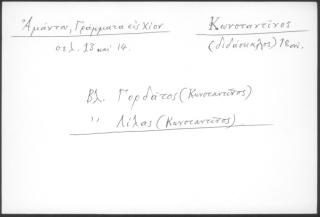 Ἀμάντου, Γράμματα εἰς Χίον
σελ. 13 καὶ 14.
Κωνσταντῖνος
(διδάσκαλος) 18 αἰ.
Βλ. Γορδάτος (Κωνσταντῖνος)
,, Λίλας (Κωνσταντῖνος)